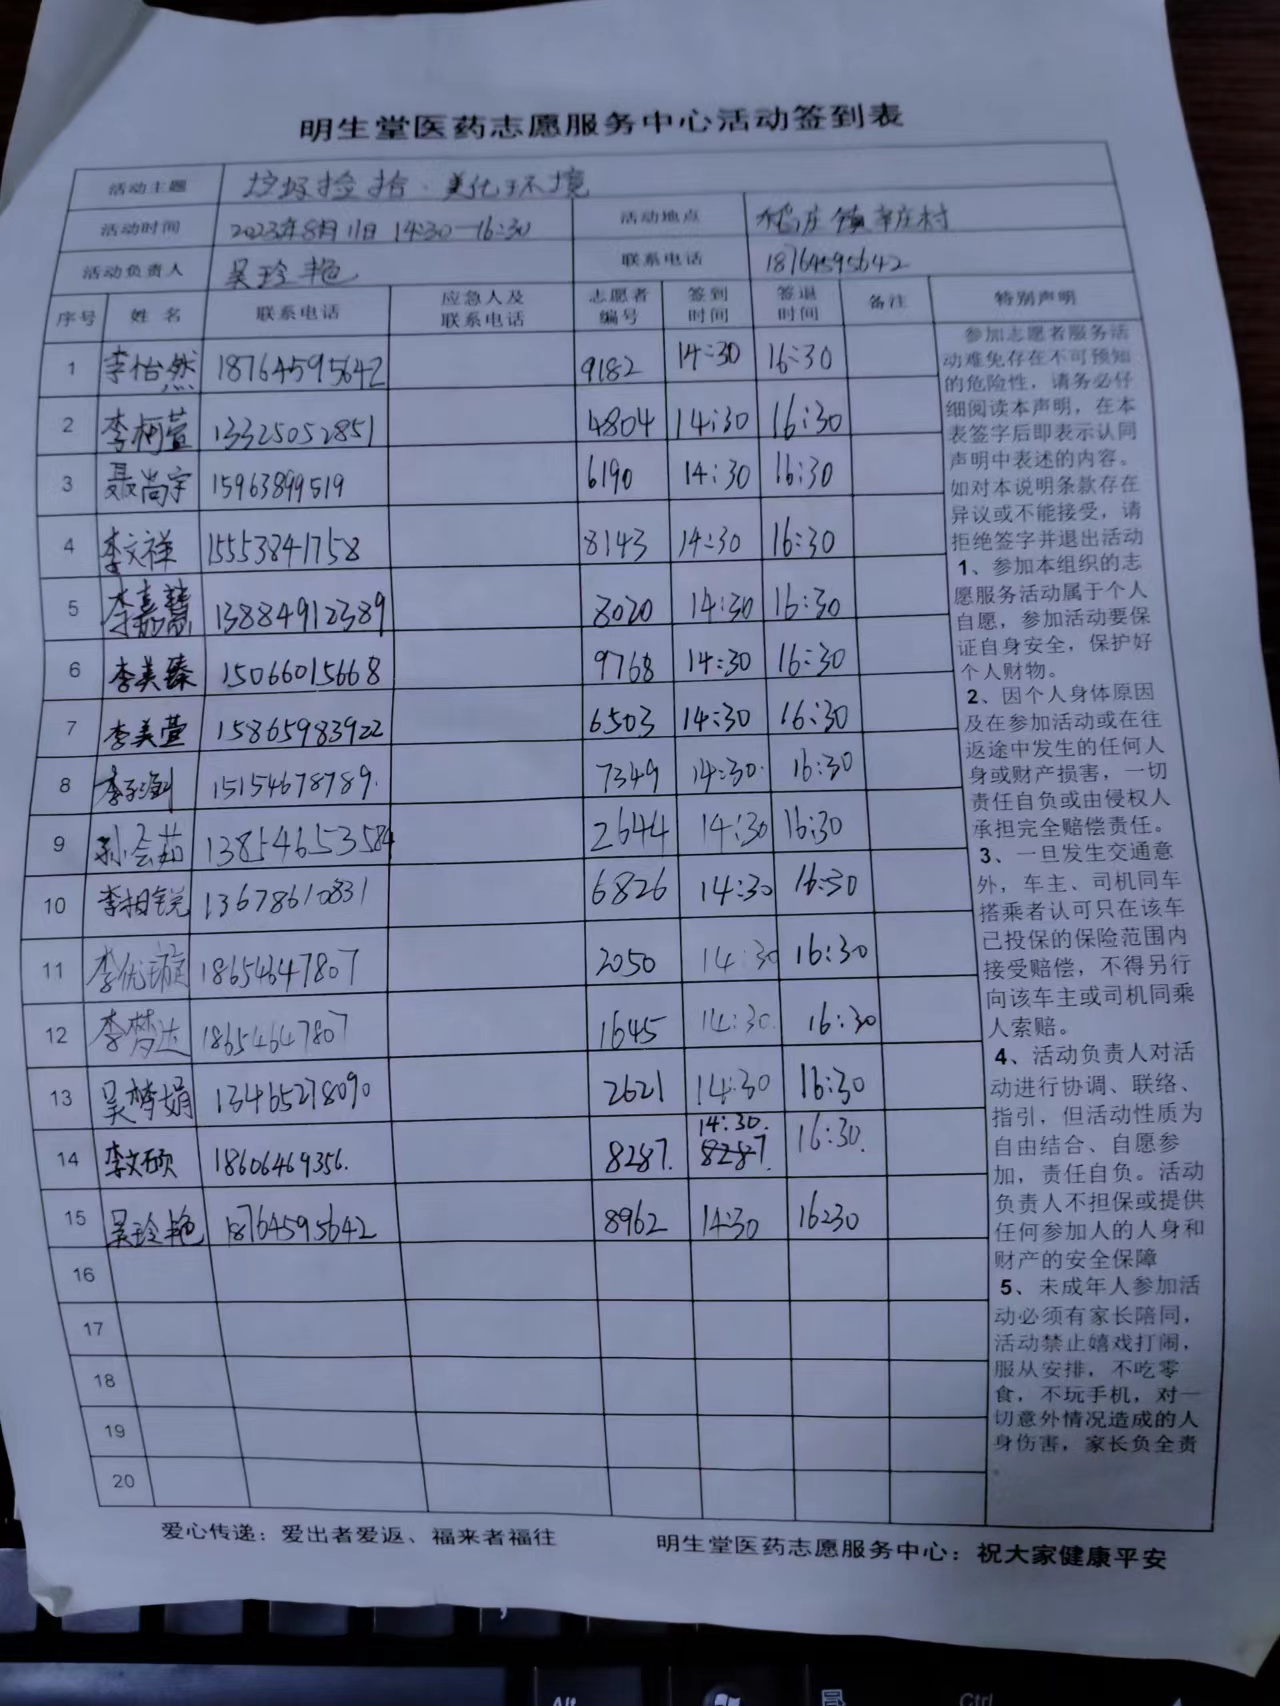 明生堂医药志愿服务中心活动签到表
活动主题 垃圾捡拾·美化环境
活动时间 2023年8月11日 14:30—16:30 活动地点 稻庄镇辛庄村
活动负责人 吴玲艳 联系电话 18764595642
序号 姓名 联系电话 应急人及联系电话 志愿者编号 签到时间 签退时间 备注 特别声明
1 李怡然 18764595642 9182 14:30 16:30
2 李柯萱 13325052851 4804 14:30 16:30
3 聂尚宇 15963899519 6190 14:30 16:30
4 李文祥 15553841758 8143 14:30 16:30
5 李嘉慧 13884912389 8020 14:30 16:30
6 李美臻 15066015668 9768 14:30 16:30
7 李美萱 15865983922 6503 14:30 16:30
8 李 15154678789. 7349 14:30. 16:30
9 孙会茹 13854653584 2644 14:30 16:30
10 李相锐 13678610831 6826 14:30 16:30
11 李优璇 18654647807 2050 14:30 16:30
12 李梦达 18654647807 1645 14:30. 16:30
13 吴梦娟 13465278090 2621 14:30 16:30
14 李文硕 18606469356. 8287. 14:30. 8287. 16:30.
15 吴玲艳 18764595642 8962 14:30 16230
16
17
18
19
20
参加志愿者服务活
动难免存在不可预知
的危险性，请务必仔
细阅读本声明，在本
表签字后即表示认同
声明中表述的内容。
如对本说明条款存在
异议或不能接受，请
拒绝签字并退出活动
1、参加本组织的志
愿服务活动属于个人
自愿，参加活动要保
证自身安全，保护好
个人财物。
2、因个人身体原因
及在参加活动或在往
返途中发生的任何人
身或财产损害，一切
责任自负或由侵权人
承担完全赔偿责任。
3、一旦发生交通意
外，车主、司机同车
搭乘者认可只在该车
已投保的保险范围内
接受赔偿，不得另行
向该车主或司机同乘
人索赔。
4、活动负责人对活
动进行协调、联络、
指引，但活动性质为
自由结合、自愿参
加，责任自负。活动
负责人不担保或提供
任何参加人的人身和
财产的安全保障
5、未成年人参加活
动必须有家长陪同，
活动禁止嬉戏打闹，
服从安排，不吃零
食，不玩手机，对一
切意外情况造成的人
身伤害，家长负全责
爱心传递：爱出者爱返、福来者福往 明生堂医药志愿服务中心：祝大家健康平安
Alt
Ctrl